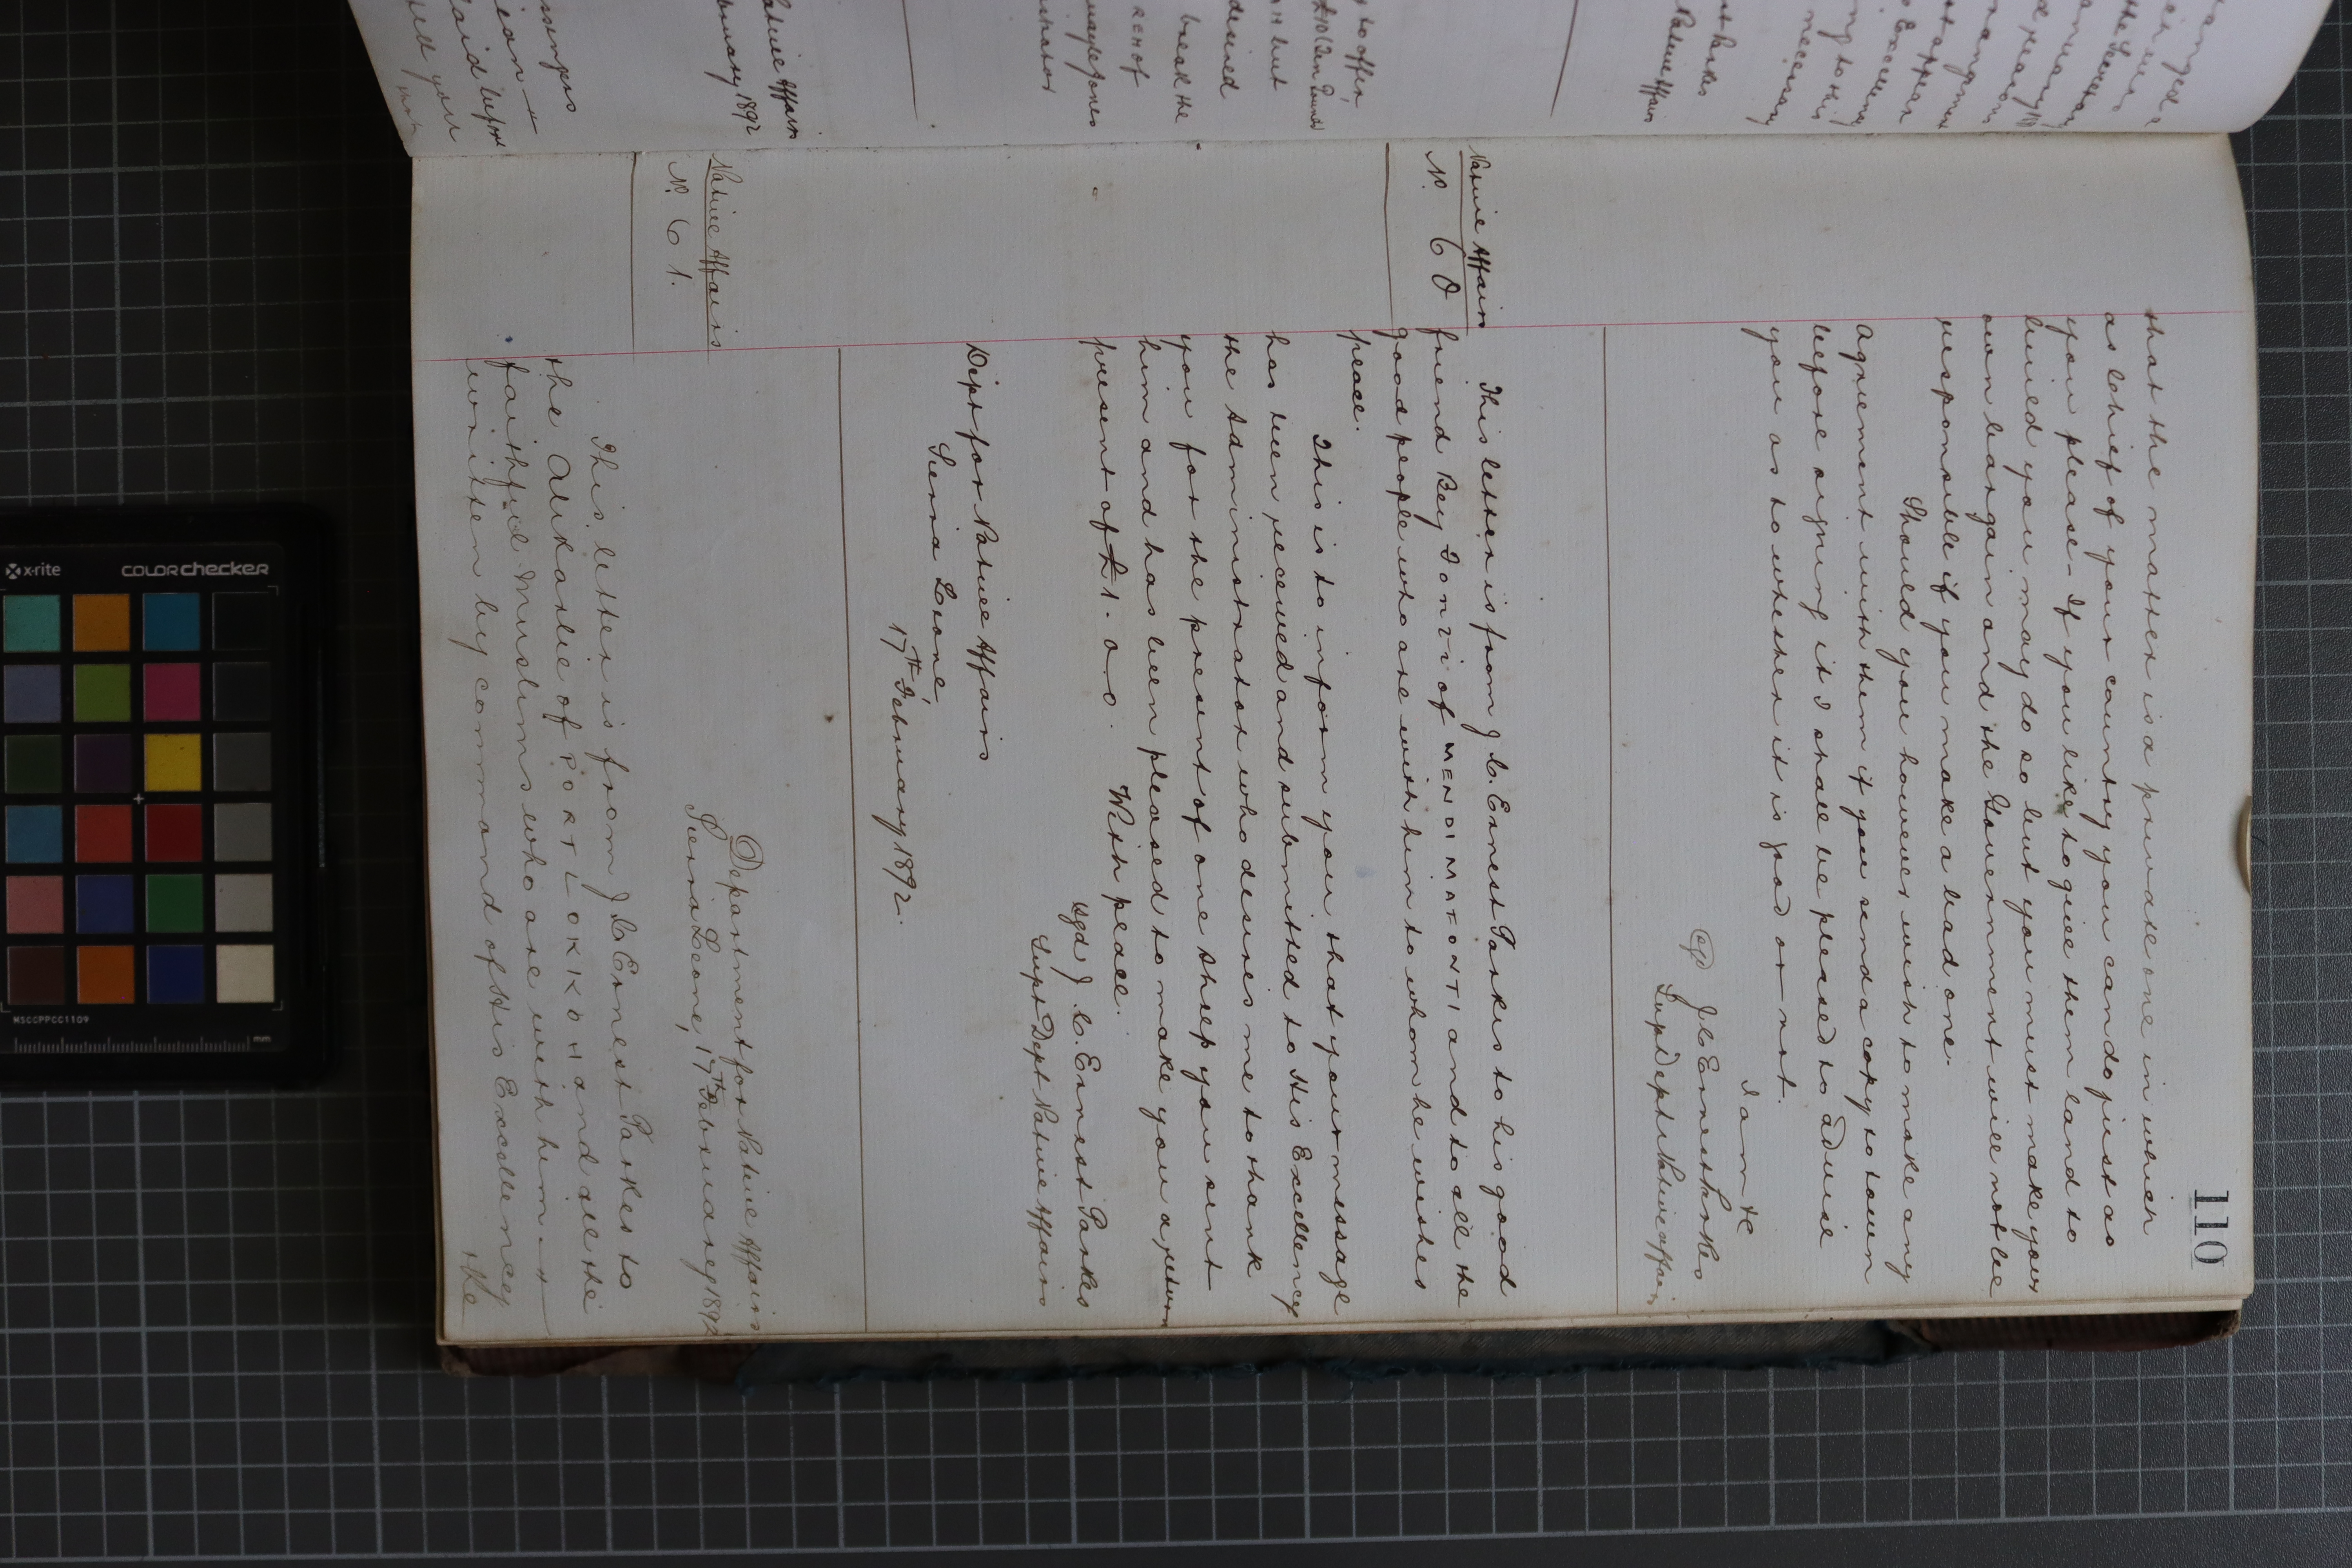 110
that the matter is a private one in which
as chief of your country you can do just as
you please - If you like to give them land to
build you may do so but you must make your
own bargain and the Government will not be
responsible if you make a bad one.
Should you however wish to make any
agreement with them if you send a copy to town
before signing it I shall be pleased to advise
you as to whether it is good or not.
I am &c
J C Ernest Parkes
Supt Dept Native Affairs
Native Affairs
No. 60
This letter is from J. C. Ernest Parkes to his good
friend Bey Fonri of MENDI MAFONTI and to all the
good people who are with him to whom he wishes
peace.
This is to inform you that your message
has been received and submitted to His Excellency
the Administrator who desires me to thank
you for the present of one sheep you sent
him and has been pleased to make you a return
present of £1. 0-0. With peace.
sgd J. C. Ernest Parkes
Supt Dept Native Affairs
Dept for Native Affairs
Sierra Leone,
17th February 1892.
Native Affairs
No. 61.
Department for Native Affairs
Sierra Leone, 17th February 1892
This letter is from J C Ernest Parkes to
the Alikalie of PORT LOKKOH and all the
faithful Muslims who are with him -
written by command of His Excellency
the
Native Affairs
February 1892
said
your
£10 (Ten Pounds)
but
desired
break the
Parkes
Native Affairs
necessary
to his
Excellency
x-rite
colorchecker
MSCCPPCC1109
mm